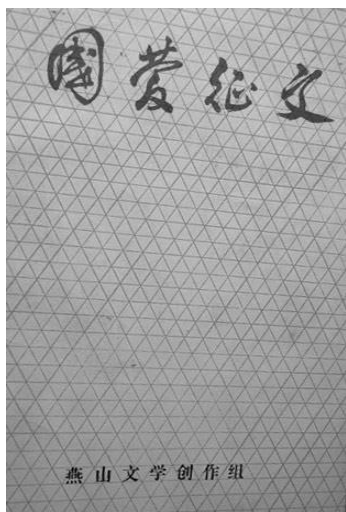 國慶征文
燕山文学创作组